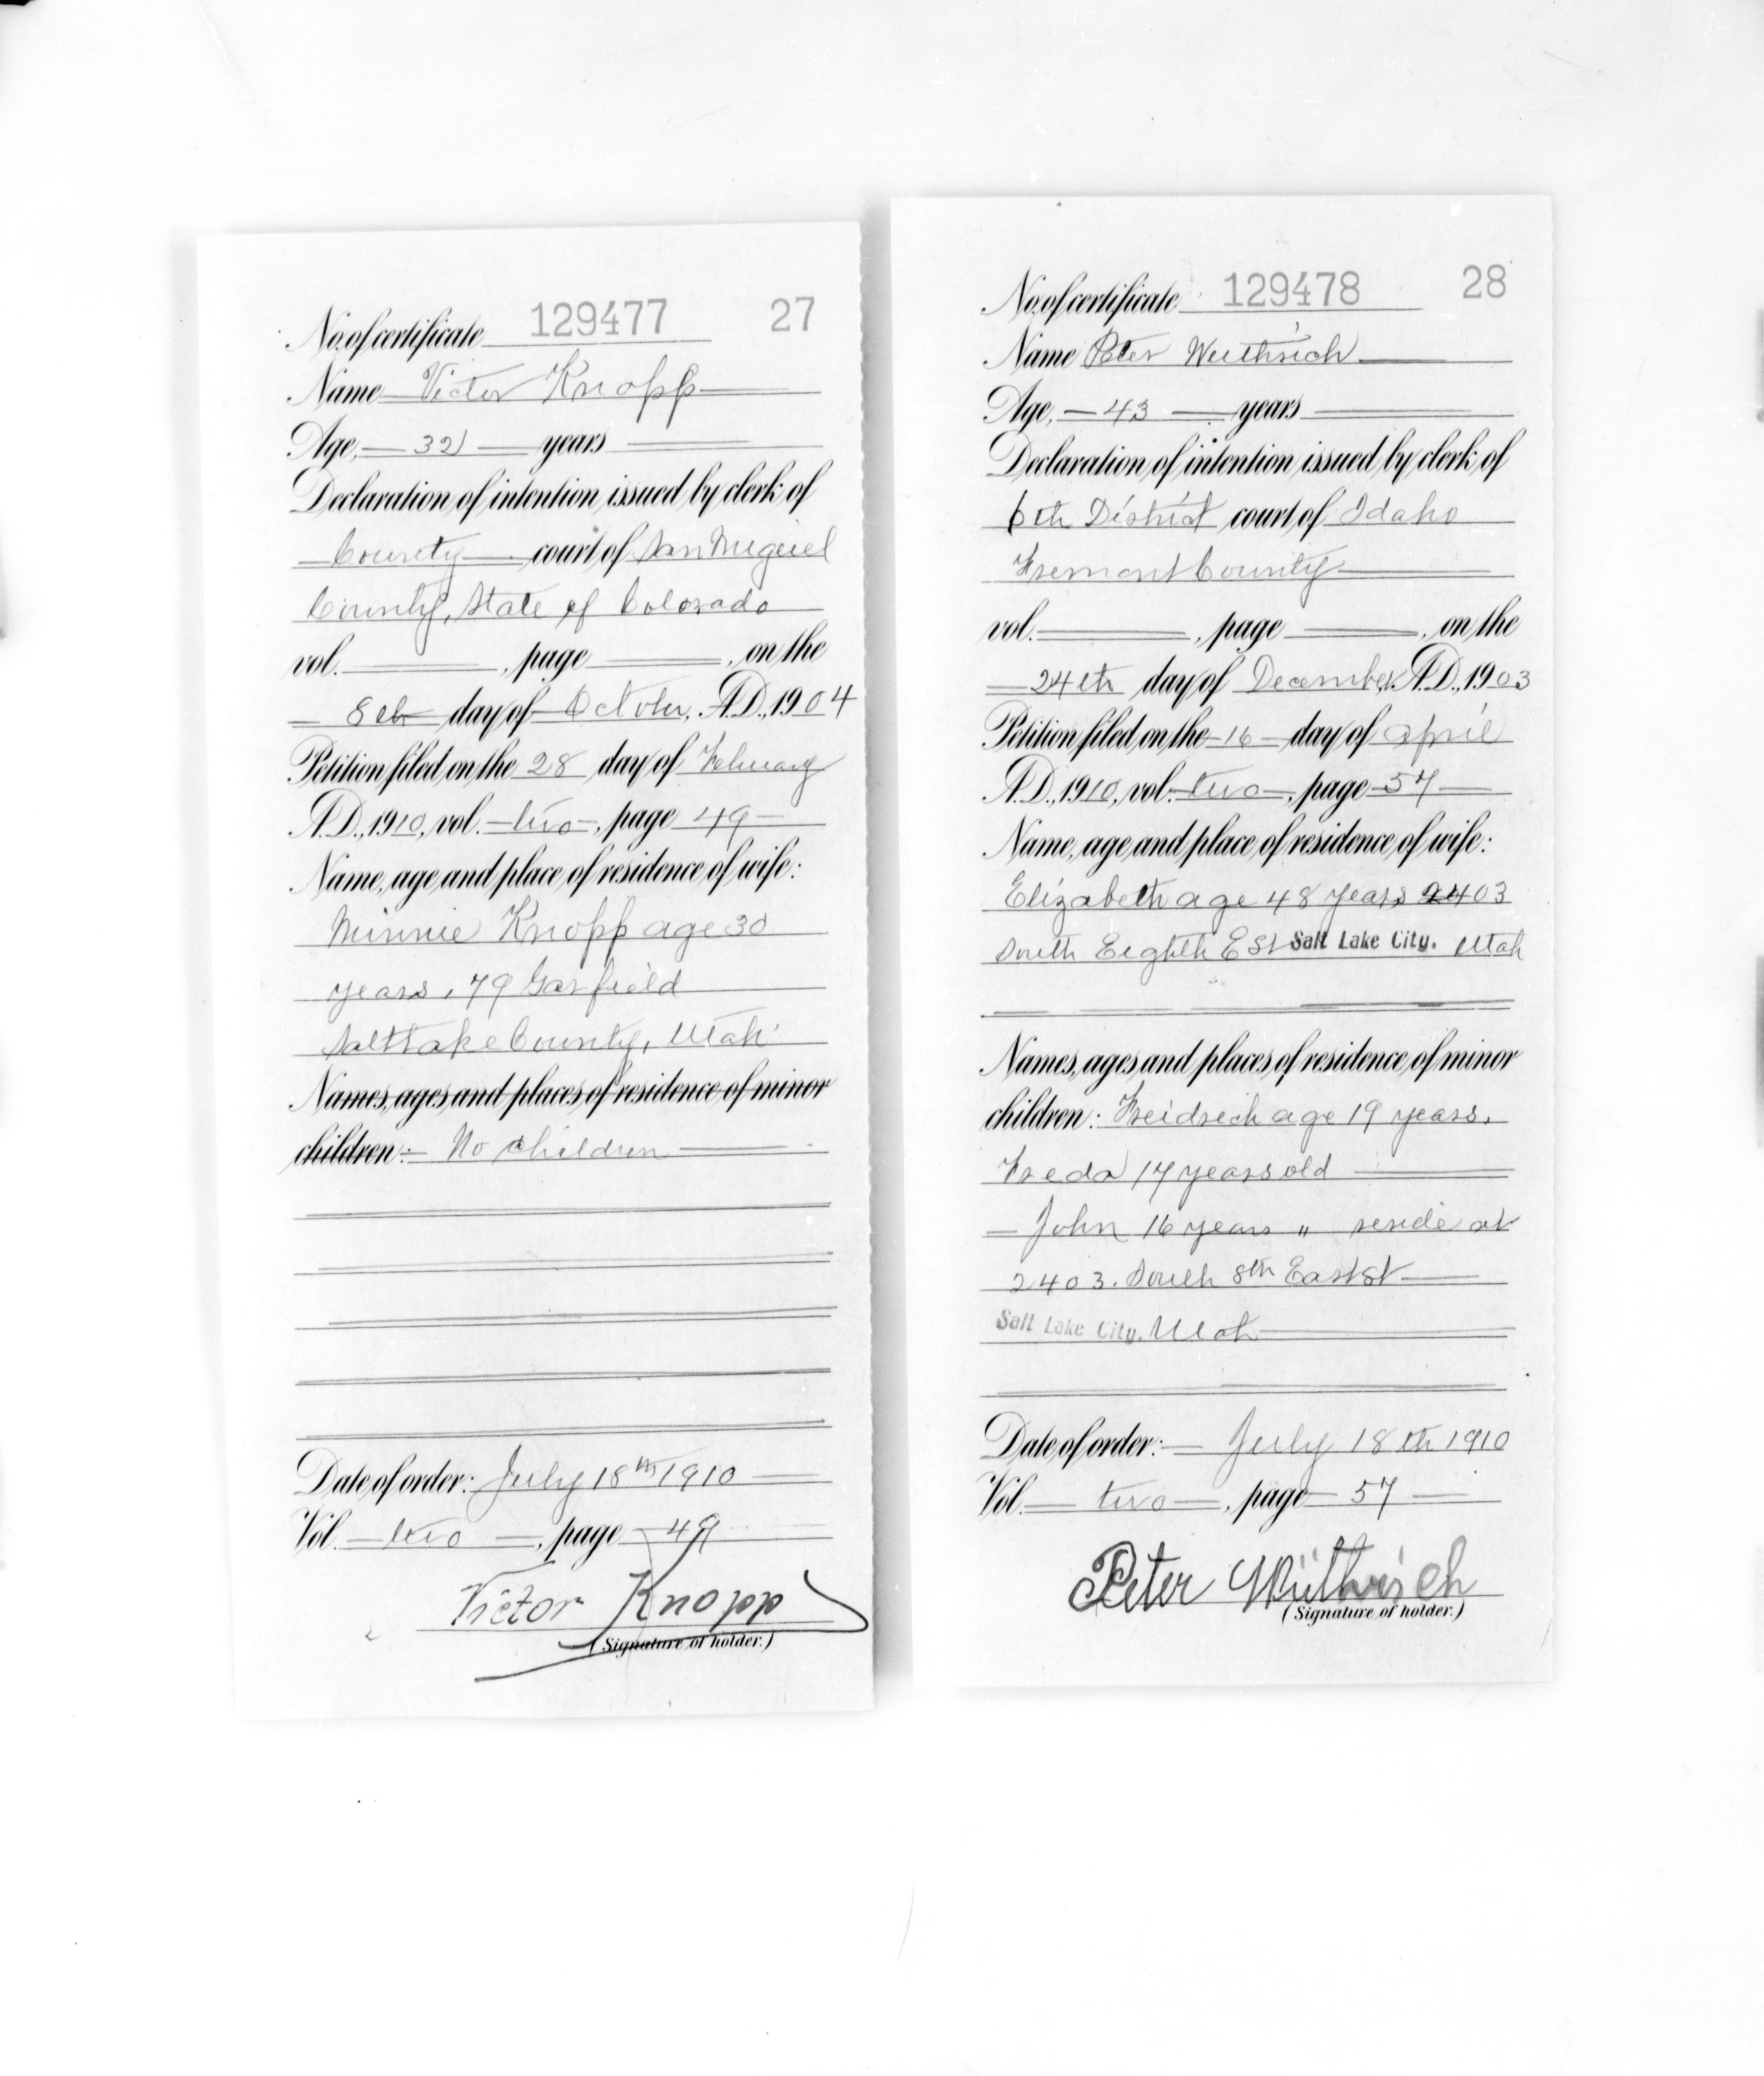 No. of certificate 129477 27
Name Victor Knopp
Age, 32 years
Declaration of intention issued by clerk of
County court of San Miguel
County, State of Colorado
vol. , page , on the
8th day of October, A.D., 1904
Petition filed on the 28 day of February
A.D., 1910, vol. two, page 49
Name, age and place of residence of wife:
Minnie Knopp age 30
years, 79 Garfield
Salt Lake County, Utah
Names, ages and places of residence of minor
children: No children
Date of order: July 18th 1910
Vol. two, page 49
Victor Knopp
(Signature of holder.)
No. of certificate 129478 28
Name Peter Wuthrich
Age, 43 years
Declaration of intention issued by clerk of
6th District court of Idaho
Fremont County
vol. , page , on the
24th day of December, A.D., 1903
Petition filed on the 16 day of April
A.D., 1910, vol. two, page 57
Name, age and place of residence of wife:
Elizabeth age 48 years 2403
South Eighth E St Salt Lake City. Utah
Names, ages and places of residence of minor
children: Freidrich age 19 years.
Freda 17 years old
John 16 years " reside at
2403. South 8th East St
Salt Lake City. Utah
Date of order: July 18th 1910
Vol. two, page 57
Peter Wüthrich
(Signature of holder.)